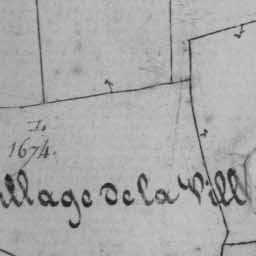 I.
1674.
illage de la Vill